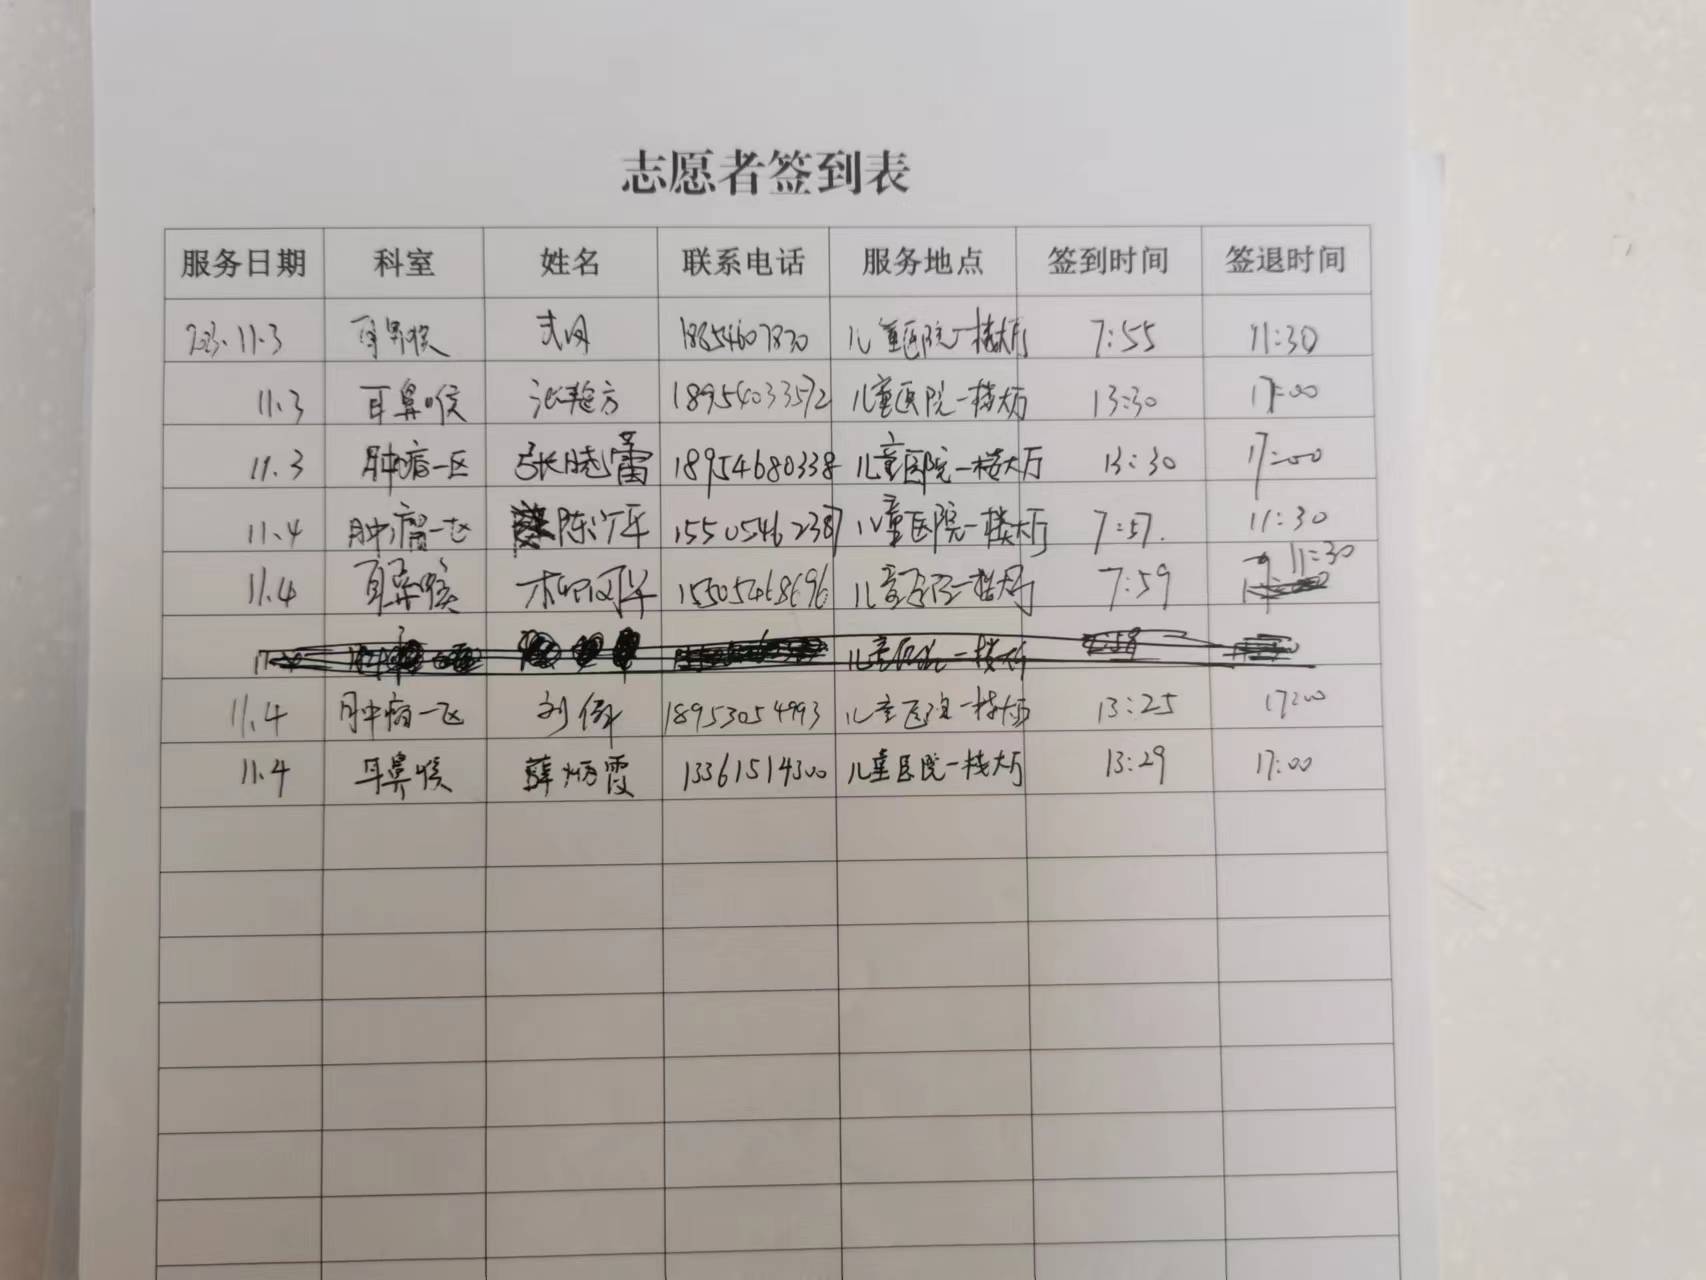 志愿者签到表
服务日期 科室 姓名 联系电话 服务地点 签到时间 签退时间
2023.11.3 耳鼻喉 18654607830 儿童医院一楼大厅 7:55 11:30
11.3 耳鼻喉 18954033572 儿童医院一楼大厅 13:30 17:00
11.3 肿瘤一区 张晓蕾 18954680338 儿童医院一楼大厅 13:30 17:00
11.4 肿瘤一区 陈 15505462387 儿童医院一楼大厅 7:57. 11:30
11.4 耳鼻喉 15505468696 儿童医院一楼大厅 7:59 11:30
儿童医院一楼大厅
11.4 肿瘤一区 刘伟 18953054993 儿童医院一楼大厅 13:25 17:00
11.4 耳鼻喉 薛炳霞 13361514300 儿童医院一楼大厅 13:29 17:00